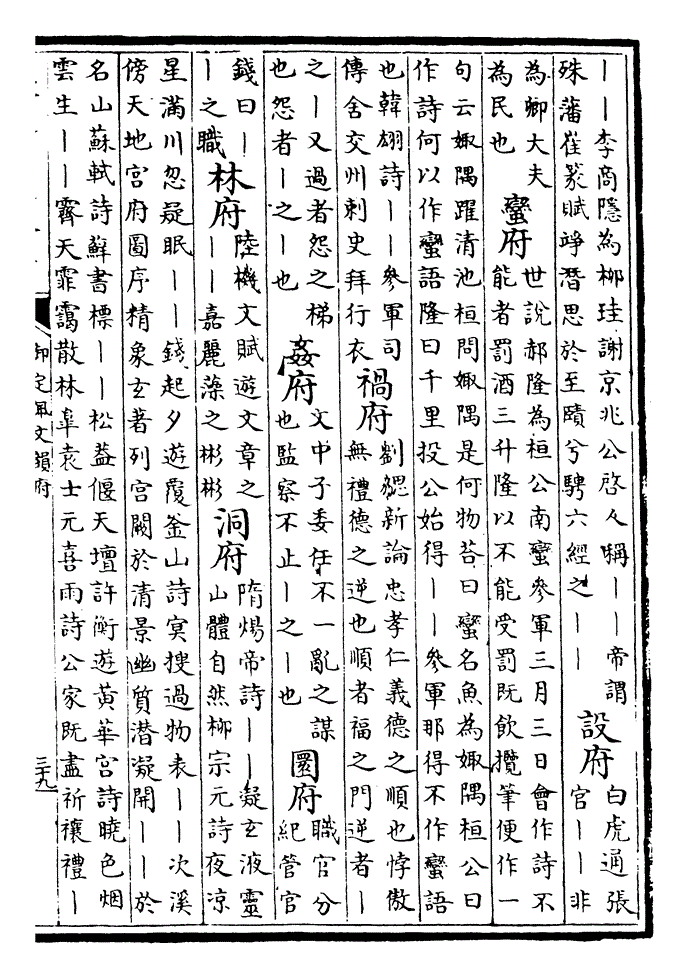 ——李商隱為柳珪謝京兆公啓人稱——帝謂
殊藩崔篆賦竫潛思於至賾兮騁六經之——
設府
白虎通張
官——非
為卿大夫
為民也
蠻府
世說郝隆為桓公南蠻參軍三月三日會作詩不
能者罰酒三升隆以不能受罰既飲攬筆便作一
句云娵隅躍清池桓問娵隅是何物荅曰蠻名魚為娵隅桓公曰
作詩何以作蠻語隆曰千里投公始得——參軍那得不作蠻語
也韓翃詩——參軍司
傳舍交州刺史拜行衣
禍府
劉勰新論忠孝仁義德之順也悖傲
無禮德之逆也順者福之門逆者—
之—又過者怨之梯
也怨者—之—也
姦府
文中子委任不一亂之謀
也監察不止—之—也
圜府
職官分
紀管官
錢曰—
—之職
林府
陸機文賦遊文章之
——嘉麗藻之彬彬
洞府
隋煬帝詩——凝玄液靈
山體自然柳宗元詩夜凉
星滿川忽疑眠——錢起夕遊覆釜山詩㝠搜過物表——次溪
傍天地宮府圖序精象玄著列宮闕於清景幽質潛凝開——於
名山蘇軾詩蘚書標——松葢偃天壇許衡遊黃華宮詩曉色烟
雲生——霽天霏靄散林臯袁士元喜雨詩公家既盡祈禳禮—
御定佩文韻府
三十九